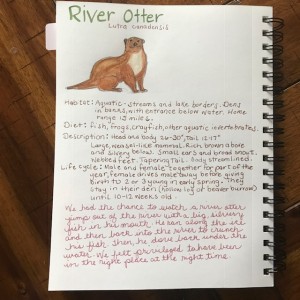 River Otter
Lutra canadensis
Habitat: Aquatic - streams and lake borders. Dens
in banks, with entrance below water. Home
range 15 miles.
Diet: fish, frogs, crayfish, other aquatic invertebrates.
Description: Head and body 26-30", Tail 12-17"
Large, weasel-like mammal. Rich brown above
and silvery below. Small ears and broad snout.
Webbed feet. Tapering tail. Body streamlined.
Life cycle: Male and female together for part of the
year, female drives male away before giving
birth to 2 or 3 young in early spring. They
stay in their den (hollow log or beaver burrow)
until 10-12 weeks old
We had the chance to watch a river otter
jump out of the river with a big, silvery
fish in his mouth. He ran along the
and then back into the river to crunch
his fish. Then, he dove back under the
water. We felt privileged to have been
in the right place at the right time.